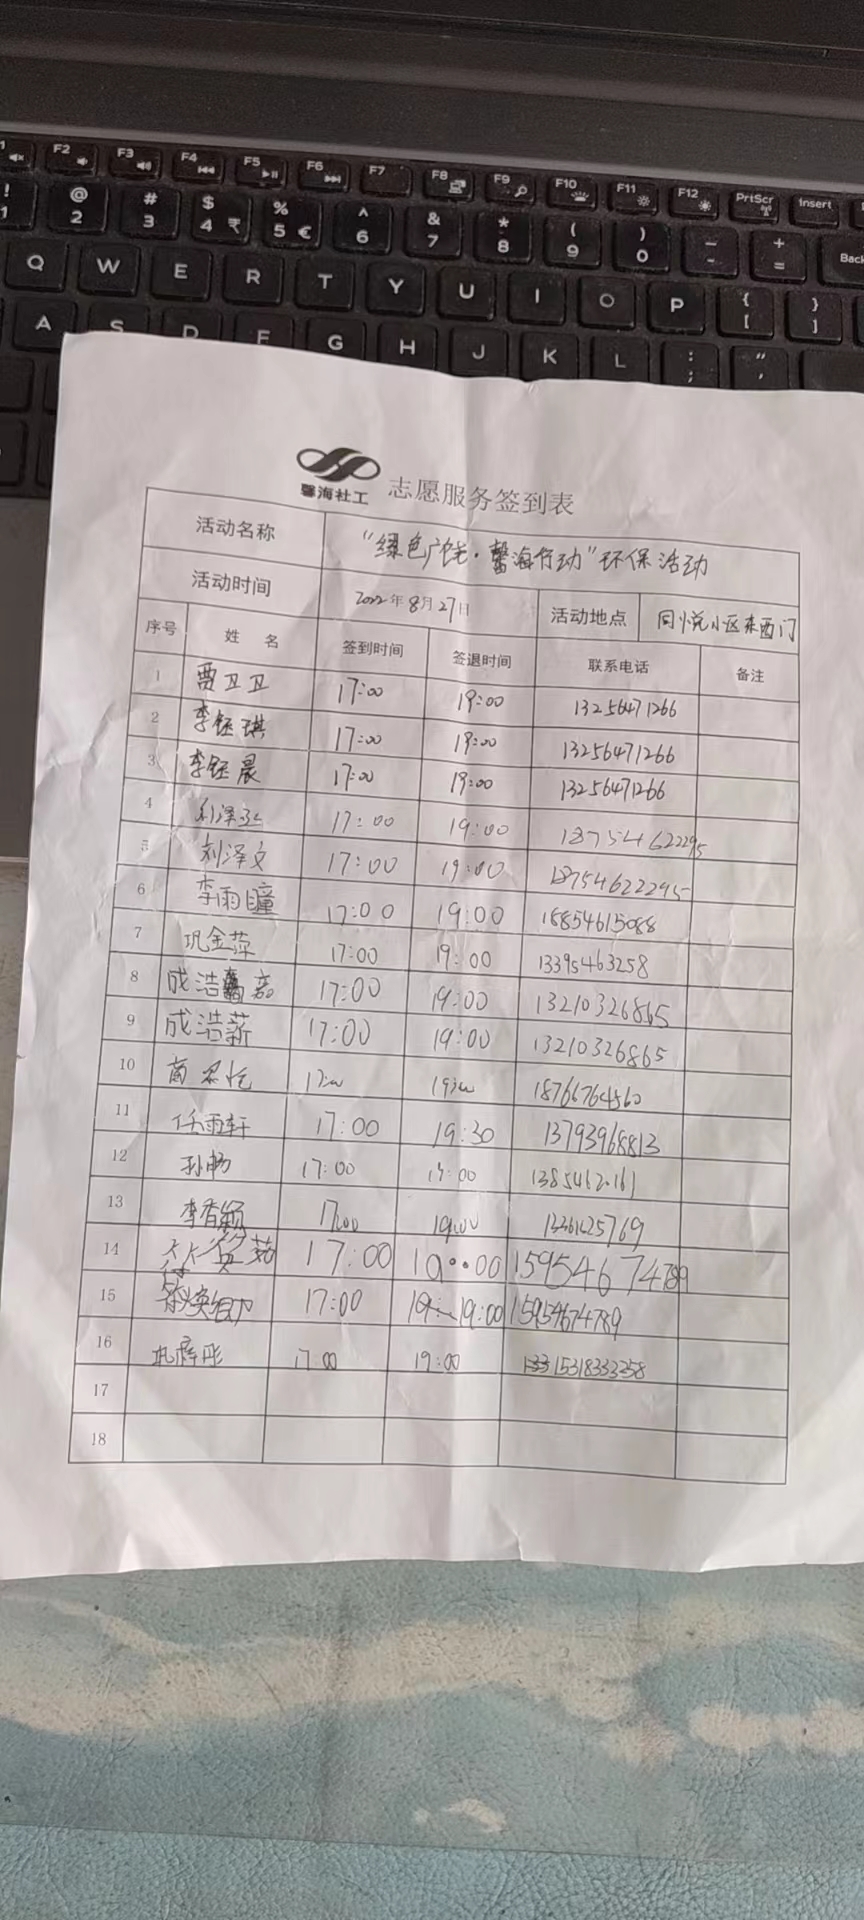 F2 F3 F4 F5 F6 F7 F8 F9 F10 F11 F12 PrtScr Insert
! 1 @ 2 # 3 $ 4 ₹ % 5 € ^ 6 & 7 * 8 ( 9 ) 0 _ - + = Back
Q W E R T Y U I O P { [ } ]
A S D F G H J K L : ; " '
馨海社工 志愿服务签到表
活动名称 "绿色广饶·馨海行动"环保活动
活动时间 2022年8月27日 活动地点 同悦小区东西门
序号 姓名 签到时间 签退时间 联系电话 备注
1 贾卫卫 17:00 19:00 13256471266
2 李钰琪 17:00 19:00 13256471266
3 李钰晨 17:00 19:00 13256471266
4 刘泽 17:00 19:00 18754622295
5 刘泽文 17:00 19:00 18754622295
6 李雨瞳 17:00 19:00 18854615088
7 巩金萍 17:00 19:00 13395463258
8 成浩 17:00 19:00 13210326865
9 成浩薪 17:00 19:00 13210326865
10 商 17:00 19:00 18766764560
11 任雨轩 17:00 19:30 13793968813
12 孙畅 17:00 19:00
13 李香颖 17:00 19:00 13361625769
14 17:00 19:00 15954674789
15 17:00 19:00 15954674789
16 17:00 19:00
17
18